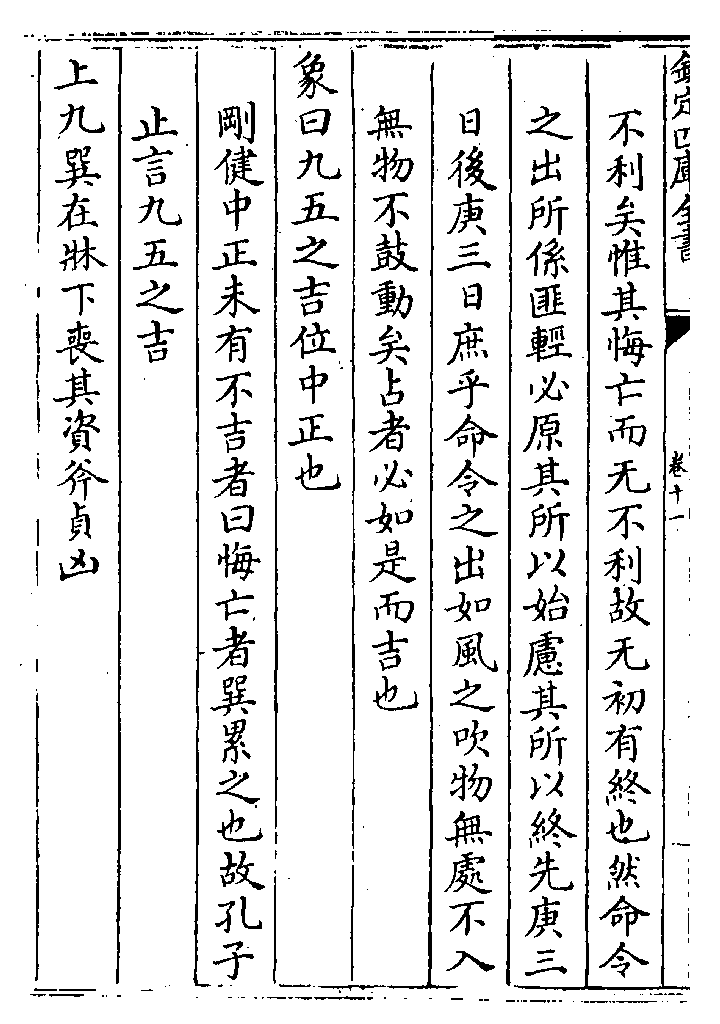 欽定四庫全書
卷十一
不利矣惟其悔亡而无不利故无初有終也然命令
之出所係匪輕必原其所以始慮其所以終先庚三
日後庚三日庶乎命令之出如風之吹物無處不入
無物不鼓動矣占者必如是而吉也
象曰九五之吉位中正也
剛健中正未有不吉者曰悔亡者巽累之也故孔子
止言九五之吉
上九巽在牀下喪其資斧貞凶